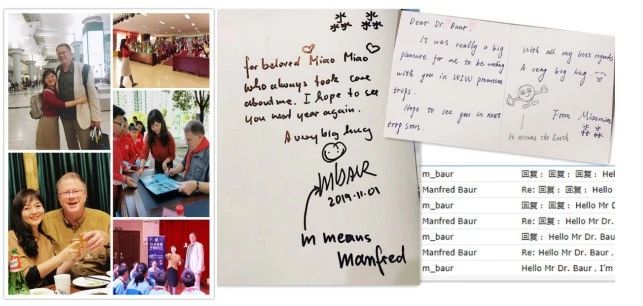 for beloved Miao Miao
who always took care
about me. I hope to see
you next year again.
A very big hug
MBAUR
2019.11.01
M means
Manfred
Dear Dr. Baur!
It was really a big
pleasure for me to be working
with you in promotion
trips.
Hope to see you in next
trip soon.
With all my best regards
A very big hug
From Miaomiao
It means the Earth
m_baur 回复： 回复： 回复： Hel
Manfred Baur Re: 回复： 回复： Hello
m_baur 回复： 回复： Hello Mr D
Manfred Baur Re: 回复： Hello Mr Dr.
m_baur 回复： Hello Mr Dr. Bau
Manfred Baur Re: Hello Mr Dr. Baur .
m_baur Hello Mr Dr. Baur . I'm